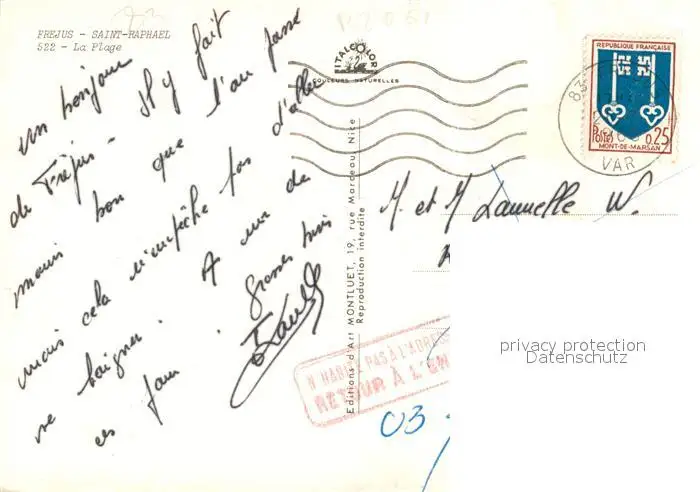 FREJUS - SAINT-RAPHAEL
522 - La Plage
un bonjour
de Fréjus - Il y fait
moins bon que l'an passé
mais cela n'empêche pas d'aller
se baigner. A un de
ces jours. Grosses bises
ITALCOLOR
COULEURS NATURELLES
Editions d'Art MONTLUET, 19, rue Marceau, Nice
Reproduction interdite
REPUBLIQUE FRANÇAISE
Postes 0,25
MONT-DE-MARSAN
83
VAR
M. et M Lannelle W.
N'HABITE PAS À L'ADRES
RETOUR À L'EN
03
privacy protection
Datenschutz